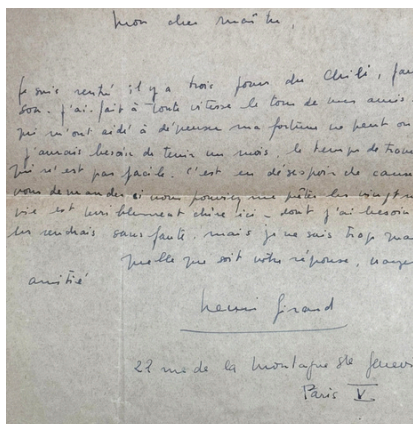 Mon cher maître,
je suis rentré il y a trois jours du Chili,
son. j'ai fait à toute vitesse le tour de mes amis,
qui m'ont aidé à dépenser ma fortune ne peut
j'aurais besoin de tenir un mois, le temps de
qui n'est pas facile. C'est en désespoir de cause
vous demander si vous pouviez me prêter les vingt
vie est terriblement chère ici - dont j'ai besoin
les rendrais sans faute. mais je ne sais trop
quelle que soit votre réponse,
amitié
Henri Girard
22 rue de la Montagne Ste
Paris V